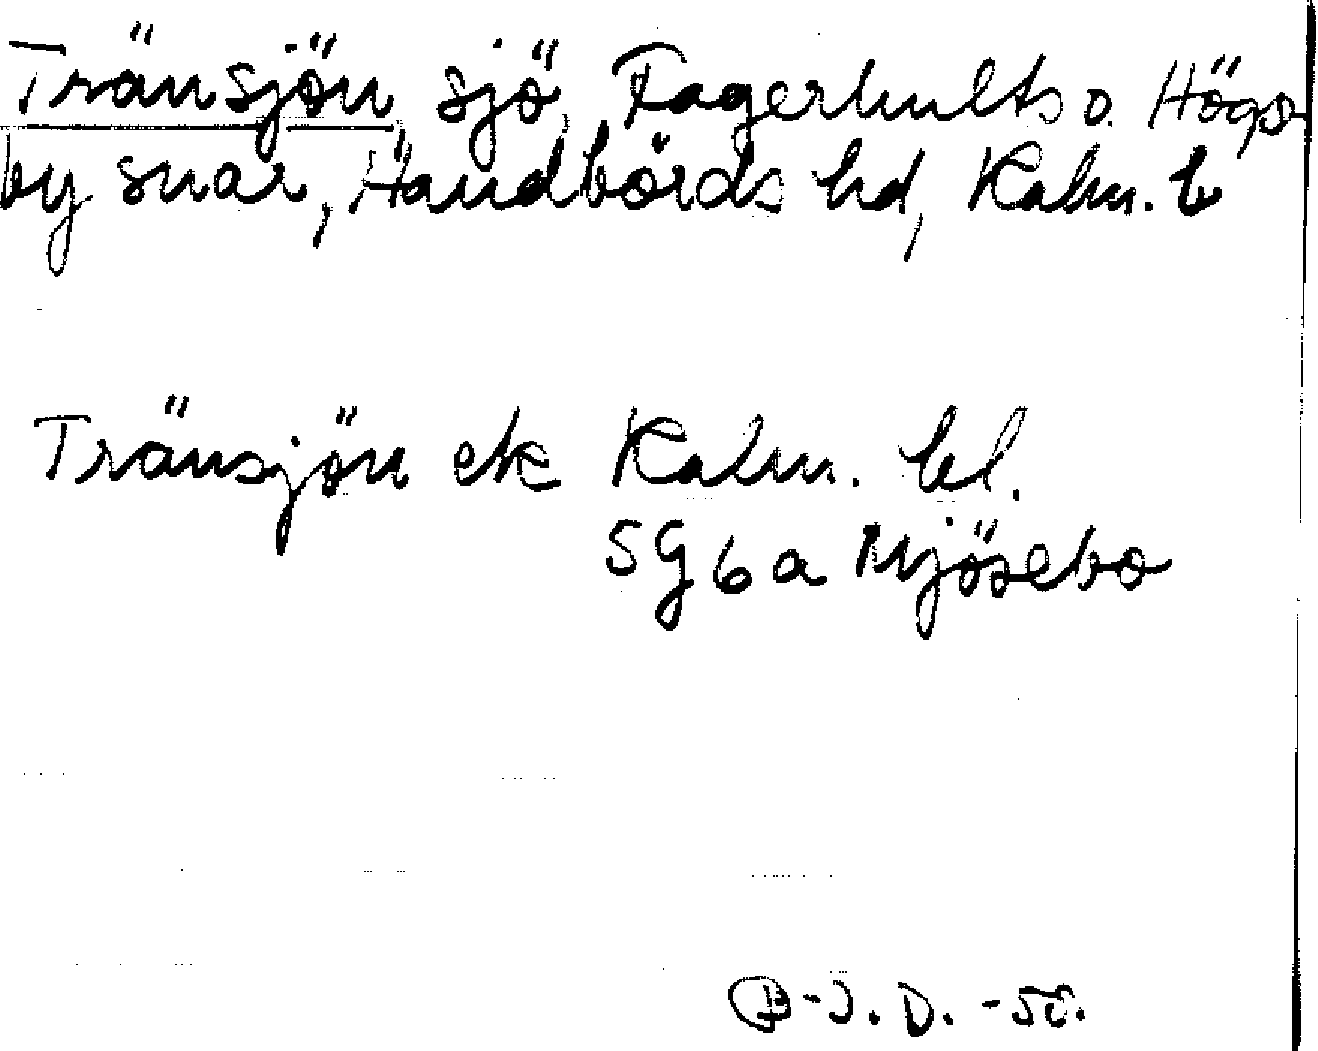 Tränsjön, sjö, Fagerhults o. Högs-
by snar, Handbörds hd, Kalm. l
Tränsjön ek Kalm. bl.
5G6a Mjösebo
B-J. D. -50.